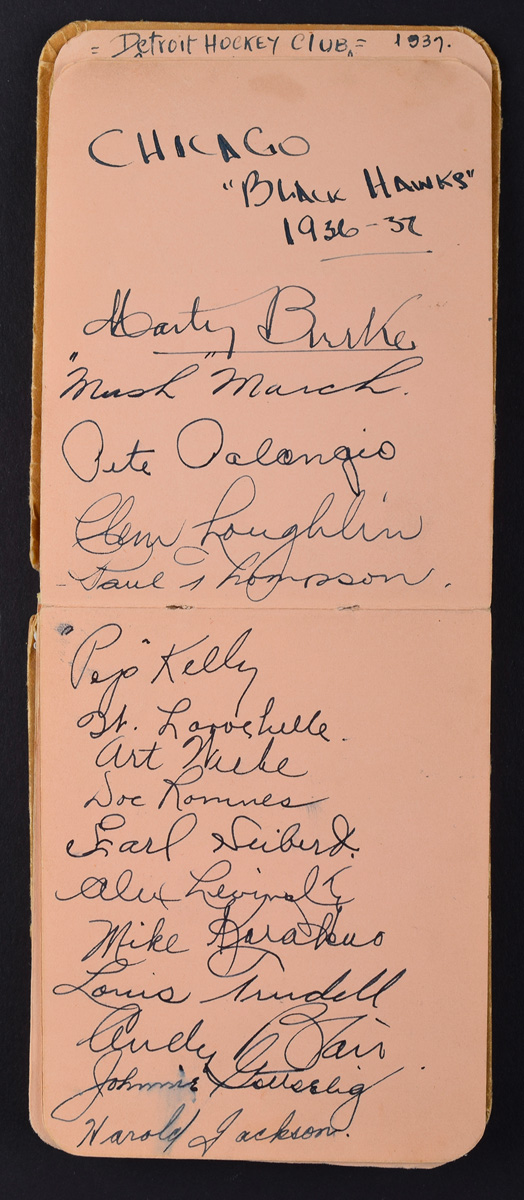 = Detroit HOCKEY CLUB = 1937.
CHICAGO
"BLACK HAWKS"
1936-37
Marty Burke
"Mush" March.
Pete Palangio
Clem Loughlin
Paul Thompson.
"Pep" Kelly
W. Larochelle.
Art Wiebe
Doc Romnes
Earl Seibert.
Alex Levinsky
Mike Karakas
Louis Trudell
Andy Blair.
Johnnie Gottselig
Harold Jackson.